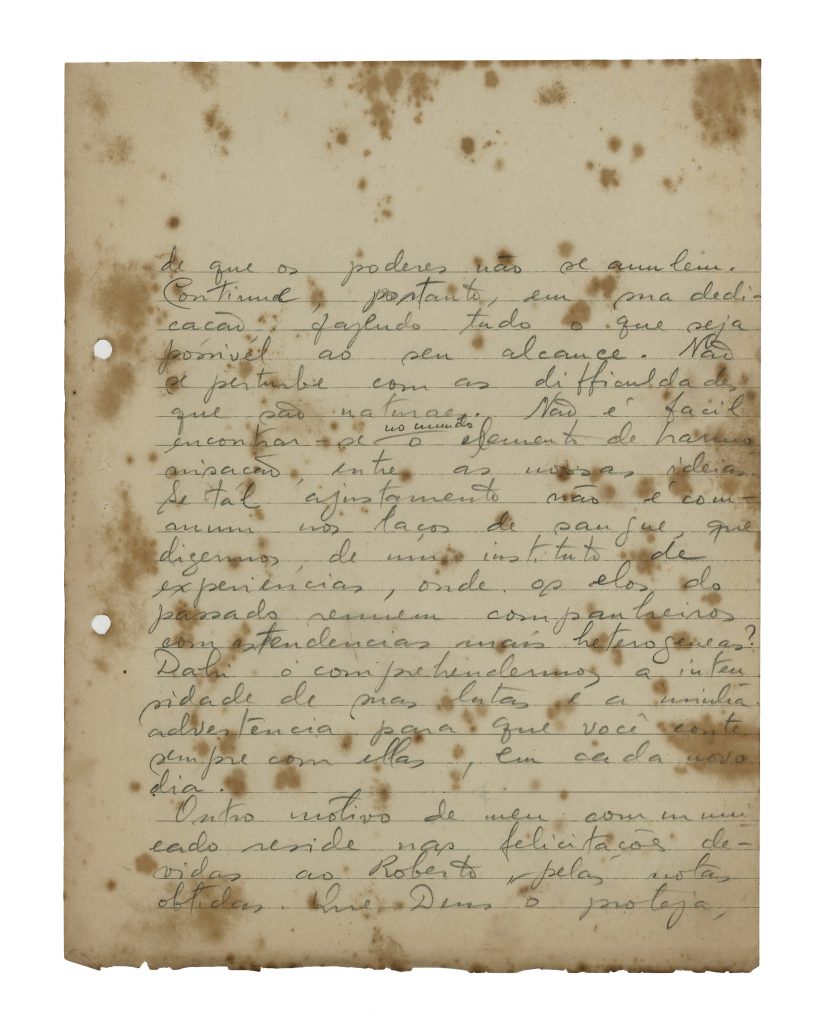 de que os poderes não se annulem.
Continue, portanto, em sua dedi-
cação, fazendo tudo o que seja
possivél ao seu alcance. Não
se perturbe com as difficuldades
que são naturaes. Não é facil
encontrar-se no mundo o elemento de harmo
nisação entre as nossas ideias.
Se tál ajustamento não é com-
mum nos laços de sangue, que
digermos de um instituto de
experiencias, onde os elos do
passado reunem companheiros
com as tendencias mais heterogeneas?
Dahi o comprehendermos a inten
sidade de suas lutas e a minha
advertência para que você conte
sempre com ellas, em cada novo
dia.
Outro motivo de meu communi
cado reside nas felicitações de-
vidas ao Roberto, pelas notas
obtidas. Que Deus o proteja,